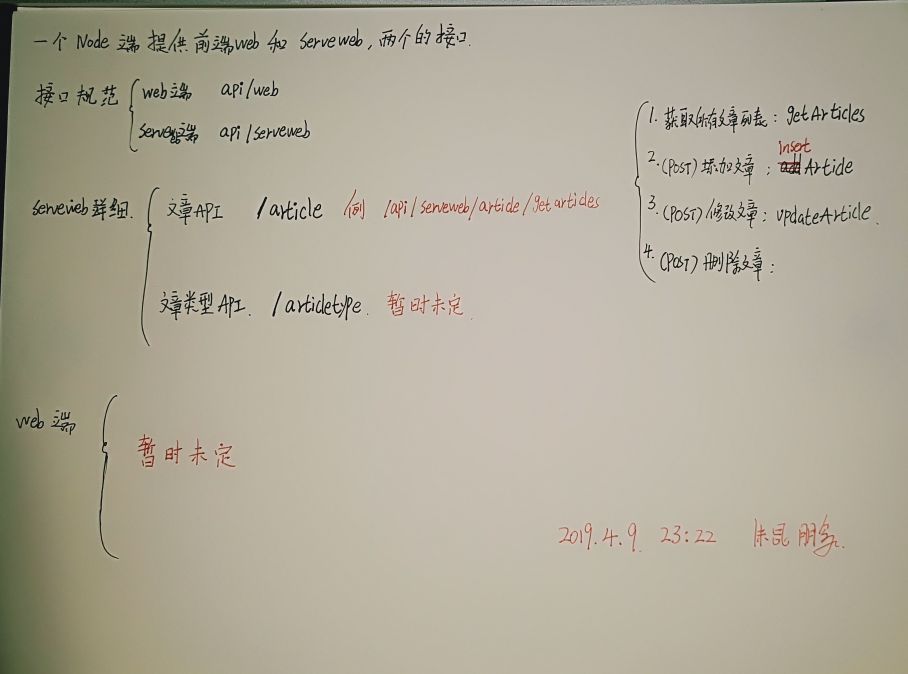 一个 Node 端 提供 前端web 和 serveweb, 两个的接口.
接口规范
web端 api/web
端 api/serveweb
serveweb 详细.
文章API /article 例 /api/serveweb/article/getarticles
文章类型API. /articletype. 暂时未定.
1. 获取所有文章列表: getArticles
2. (POST) 添加文章: insert Article
3. (POST) 修改文章: updateArticle.
4. (POST) 删除文章:
web 端
暂时未定
2019.4.9. 23:22